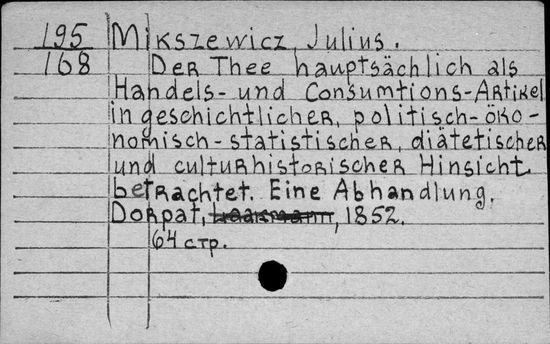 195 Mikszewicz, Julius.
168 Der Thee hauptsächlich als
Handels- und Consumtions-Artikel
in geschichtlicher, politisch-öko-
nomisch-statistischer, diätetischer
und culturhistorischer Hinsicht
betrachtet. Eine Abhandlung.
Dorpat, Laakmann, 1852.
64 стр.